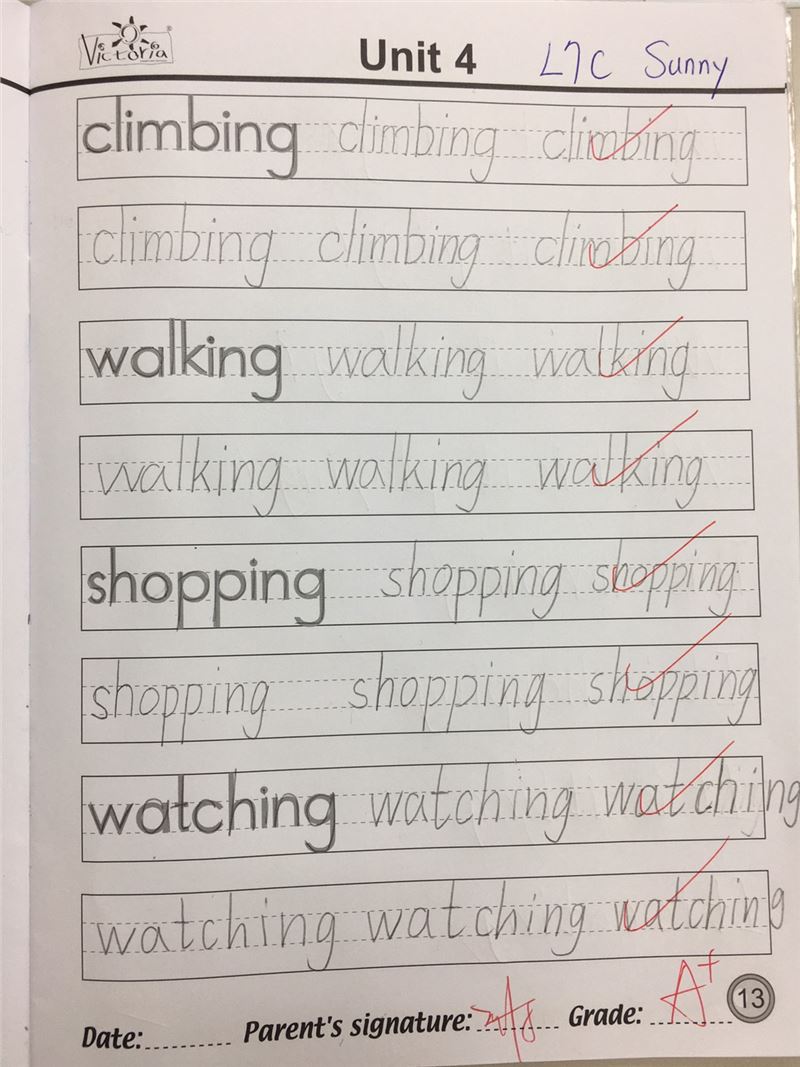 Victoria
Unit 4 L7C Sunny
climbing climbing climbing
climbing climbing climbing
walking walking walking
walking walking walking
shopping shopping shopping
shopping shopping shopping
watching watching watching
watching watching watching
Date: Parent's signature: Grade: A+ 13